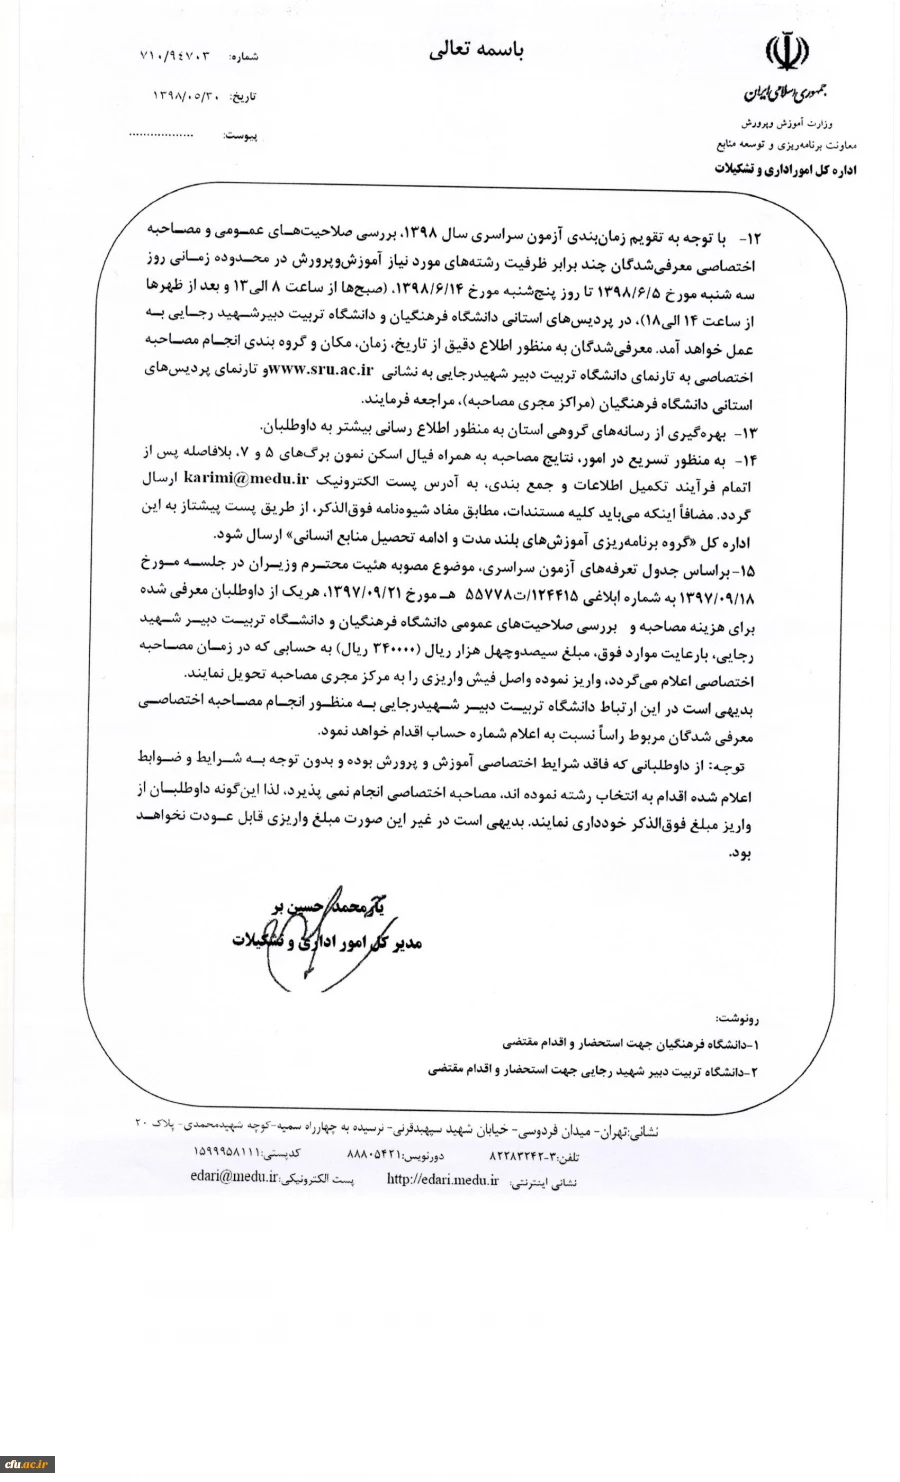 باسمه تعالی
جمهوری اسلامی ایران
وزارت آموزش وپرورش
معاونت برنامه‌ریزی و توسعه منابع
اداره کل امور اداری و تشکیلات
شماره: ۷۱۰/۹٤۷۰۳
تاریخ: ۱۳۹۸/۰۵/۳۰
پیوست: ..................
۱۲- با توجه به تقویم زمان‌بندی آزمون سراسری سال ۱۳۹۸، بررسی صلاحیت‌هـای عمـومی و مصـاحبه
اختصاصی معرفی‌شدگان چند برابر ظرفیت رشته‌های مورد نیاز آموزش‌وپرورش در محـدوده زمـانی روز
سه شنبه مورخ ۱۳۹۸/۶/۵ تا روز پنج‌شنبه مورخ ۱۳۹۸/۶/۱۴، (صبح‌ها از ساعت ۸ الی۱۳ و بعد از ظهرها
از ساعت ۱۴ الی۱۸)، در پردیس‌های استانی دانشگاه فرهنگیان و دانشگاه تربیت دبیرشـهید رجـایی بـه
عمل خواهد آمد. معرفی‌شدگان به منظور اطلاع دقیق از تاریخ، زمان، مکان و گروه بندی انجـام مصـاحبه
اختصاصی به تارنمای دانشگاه تربیت دبیر شهیدرجایی به نشانی www.sru.ac.ir و تارنمای پردیس‌های
استانی دانشگاه فرهنگیان (مراکز مجری مصاحبه)، مراجعه فرمایند.
۱۳- بهره‌گیری از رسانه‌های گروهی استان به منظور اطلاع رسانی بیشتر به داوطلبان.
۱۴- به منظور تسریع در امور، نتایج مصاحبه به همراه فیال اسکن نمون برگ‌های ۵ و ۷، بلافاصله پس از
اتمام فرآیند تکمیل اطلاعات و جمع بندی، به آدرس پست الکترونیک karimi@medu.ir ارسال
گردد. مضافاً اینکه می‌باید کلیه مستندات، مطابق مفاد شیوه‌نامه فوق‌الذکر، از طریق پست پیشتاز به این
اداره کل «گروه برنامه‌ریزی آموزش‌های بلند مدت و ادامه تحصیل منابع انسانی» ارسال شود.
۱۵-براساس جدول تعرفه‌های آزمون سراسری، موضوع مصوبه هئیت محتـرم وزیـران در جلسـه مـورخ
۱۳۹۷/۰۹/۱۸ به شماره ابلاغی ۱۲۴۴۱۵/ت۵۵۷۷۸ هـ مورخ ۱۳۹۷/۰۹/۲۱، هریک از داوطلبان معرفی شده
برای هزینه مصاحبه و بررسی صلاحیت‌های عمومی دانشگاه فرهنگیان و دانشـگاه تربیـت دبیـر شـهید
رجایی، بارعایت موارد فوق، مبلغ سیصدوچهل هزار ریال (۳۴۰۰۰۰ ریال) به حسابی که در زمـان مصـاحبه
اختصاصی اعلام می‌گردد، واریز نموده واصل فیش واریزی را به مرکز مجری مصاحبه تحویل نمایند.
بدیهی است در این ارتباط دانشگاه تربیـت دبیـر شـهیدرجایی بـه منظـور انجـام مصـاحبه اختصاصـی
معرفی شدگان مربوط راساً نسبت به اعلام شماره حساب اقدام خواهد نمود.
توجه: از داوطلبانی که فاقد شرایط اختصاصی آموزش و پرورش بوده و بدون توجه بـه شـرایط و ضـوابط
اعلام شده اقدام به انتخاب رشته نموده اند، مصاحبه اختصاصی انجام نمی پذیرد، لذا این‌گونه داوطلبـان از
واریز مبلغ فوق‌الذکر خودداری نمایند. بدیهی است در غیر این صورت مبلغ واریزی قابل عـودت نخواهـد
بود.
یارمحمد حسین بر
مدیر کل امور اداری و تشکیلات
رونوشت:
۱-دانشگاه فرهنگیان جهت استحضار و اقدام مقتضی
۲-دانشگاه تربیت دبیر شهید رجایی جهت استحضار و اقدام مقتضی
نشانی:تهران- میدان فردوسی- خیابان شهید سپهبدقرنی- نرسیده به چهارراه سمیه-کوچه شهیدمحمدی- پلاک ۲۰
تلفن:۳-۸۲۲۸۳۲۴۲ دورنویس:۸۸۸۰۵۴۲۱ کدپستی:۱۵۹۹۹۵۸۱۱۱
نشانی اینترنتی: http://edari.medu.ir پست الکترونیکی:edari@medu.ir
cfu.ac.ir